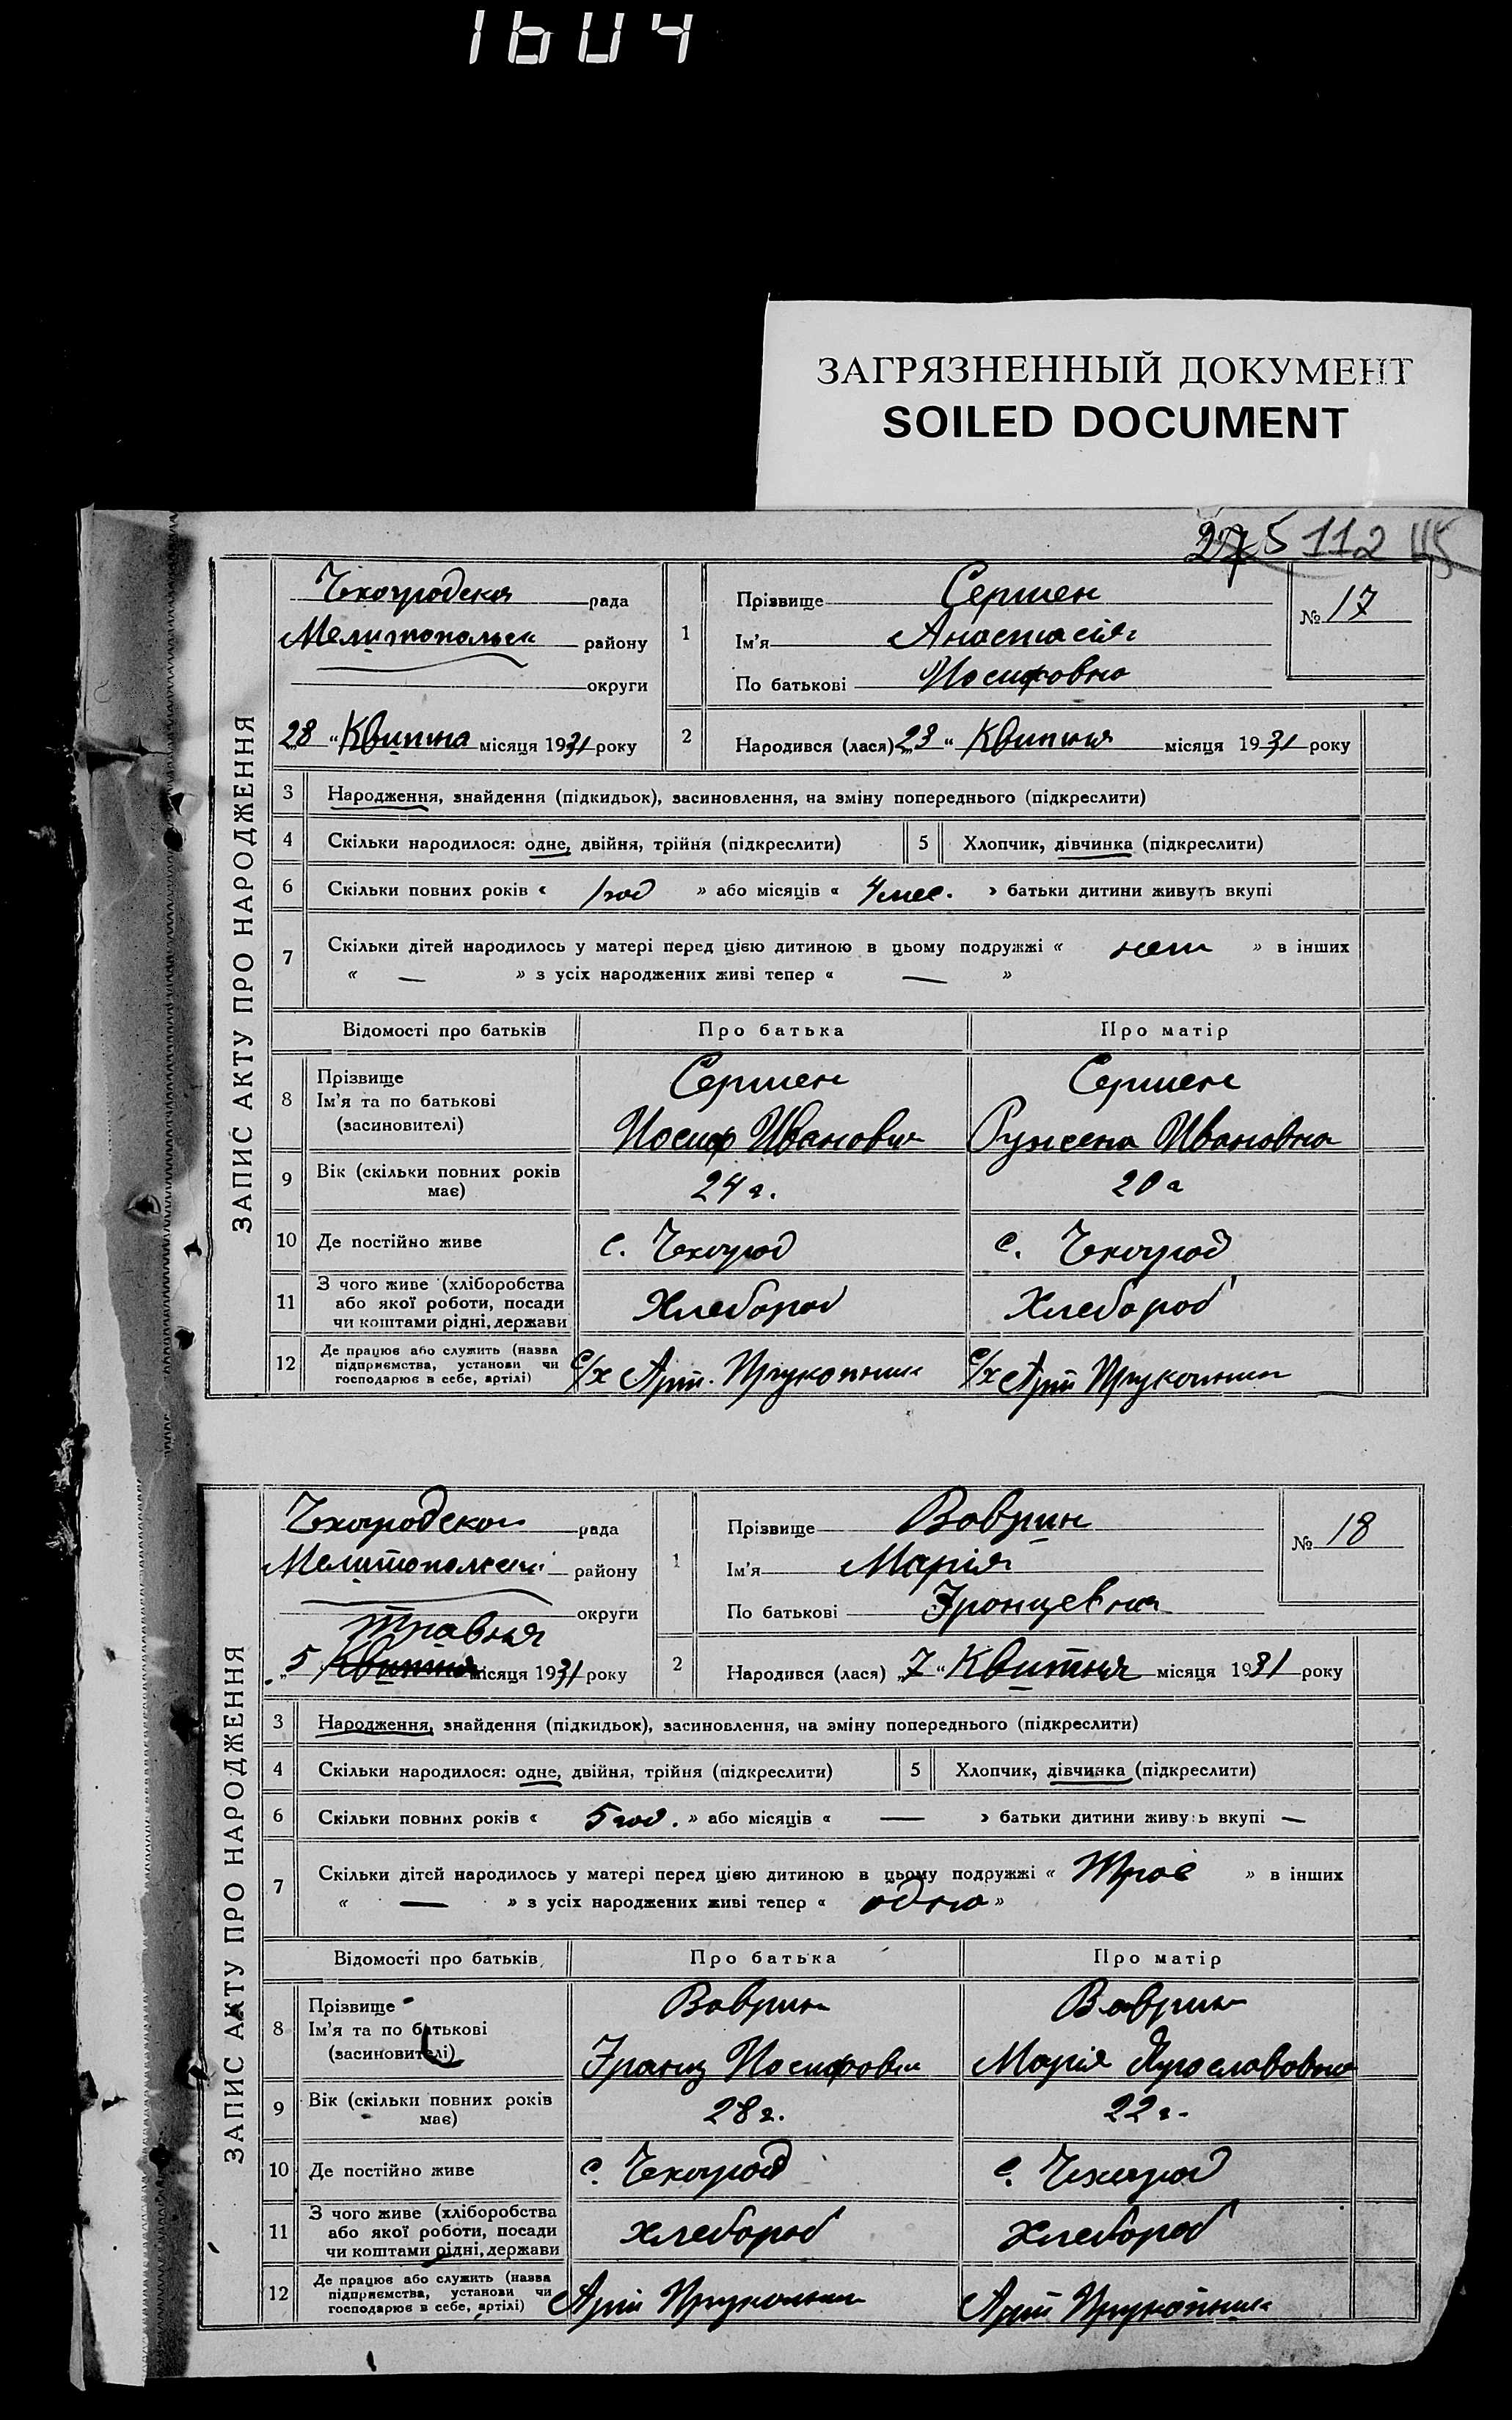 1604
ЗАГРЯЗНЕННЫЙ ДОКУМЕНТ
SOILED DOCUMENT
275 112 115
ЗАПИС АКТУ ПРО НАРОДЖЕННЯ
Чехоградская рада
Мелитопольск району
округи
28 "Квитня місяця 1931 року
1
Прізвище Сермен
Ім'я Анастасія
По батькові Иосифовна
№ 17
2
Народився (лася) „23" Квитня місяця 1931 року
3 Народження, знайдення (підкидьок), засиновлення, на зміну попереднього (підкреслити)
4 Скільки народилося: одне, двійня, трійня (підкреслити) 5 Хлопчик, дівчинка (підкреслити)
6 Скільки повних років « 1 год » або місяців « 4 мес. » батьки дитини живуть вкупі
7 Скільки дітей народилось у матері перед цією дитиною в цьому подружжі « нет » в інших
« — » з усіх народжених живі тепер « — »
Відомості про батьків Про батька Про матір
8 Прізвище Ім'я та по батькові (засиновителі)
Сермен Сермен
Иосиф Иванович Ружена Ивановна
9 Вік (скільки повних років має) 24 г. 20 г
10 Де постійно живе с. Чехоград с. Чехоград
11 З чого живе (хліборобства або якої роботи, посади чи коштами рідні, держави Хлебороб Хлебороб
12 Де працює або служить (назва підприємства, установи чи господарює в себе, артілі) с/х Арт. с/х Арт
ЗАПИС АКТУ ПРО НАРОДЖЕННЯ
Чехоградская рада
Мелитопольской району
округи
Травня
„5 Квитня місяця 1931 року
1
Прізвище Воврин
Ім'я Марія
По батькові Францевна
№ 18
2
Народився (лася) „7" Квитня місяця 1931 року
3 Народження, знайдення (підкидьок), засиновлення, на зміну попереднього (підкреслити)
4 Скільки народилося: одне, двійня, трійня (підкреслити) 5 Хлопчик, дівчинка (підкреслити)
6 Скільки повних років « 5 год. » або місяців « — » батьки дитини живуть вкупі —
7 Скільки дітей народилось у матері перед цією дитиною в цьому подружжі « Троє » в інших
« — » з усіх народжених живі тепер « одно »
Відомості про батьків Про батька Про матір
8 Прізвище Ім'я та по батькові (засиновителі)
Воврин Воврин
Франц Иосифович Марія Ярославовна
9 Вік (скільки повних років має) 28 г. 22 г.
10 Де постійно живе с. Чехоград с. Чехоград
11 З чого живе (хліборобства або якої роботи, посади чи коштами рідні, держави хлебороб Хлебороб
12 Де працює або служить (назва підприємства, установи чи господарює в себе, артілі) Арт Арт